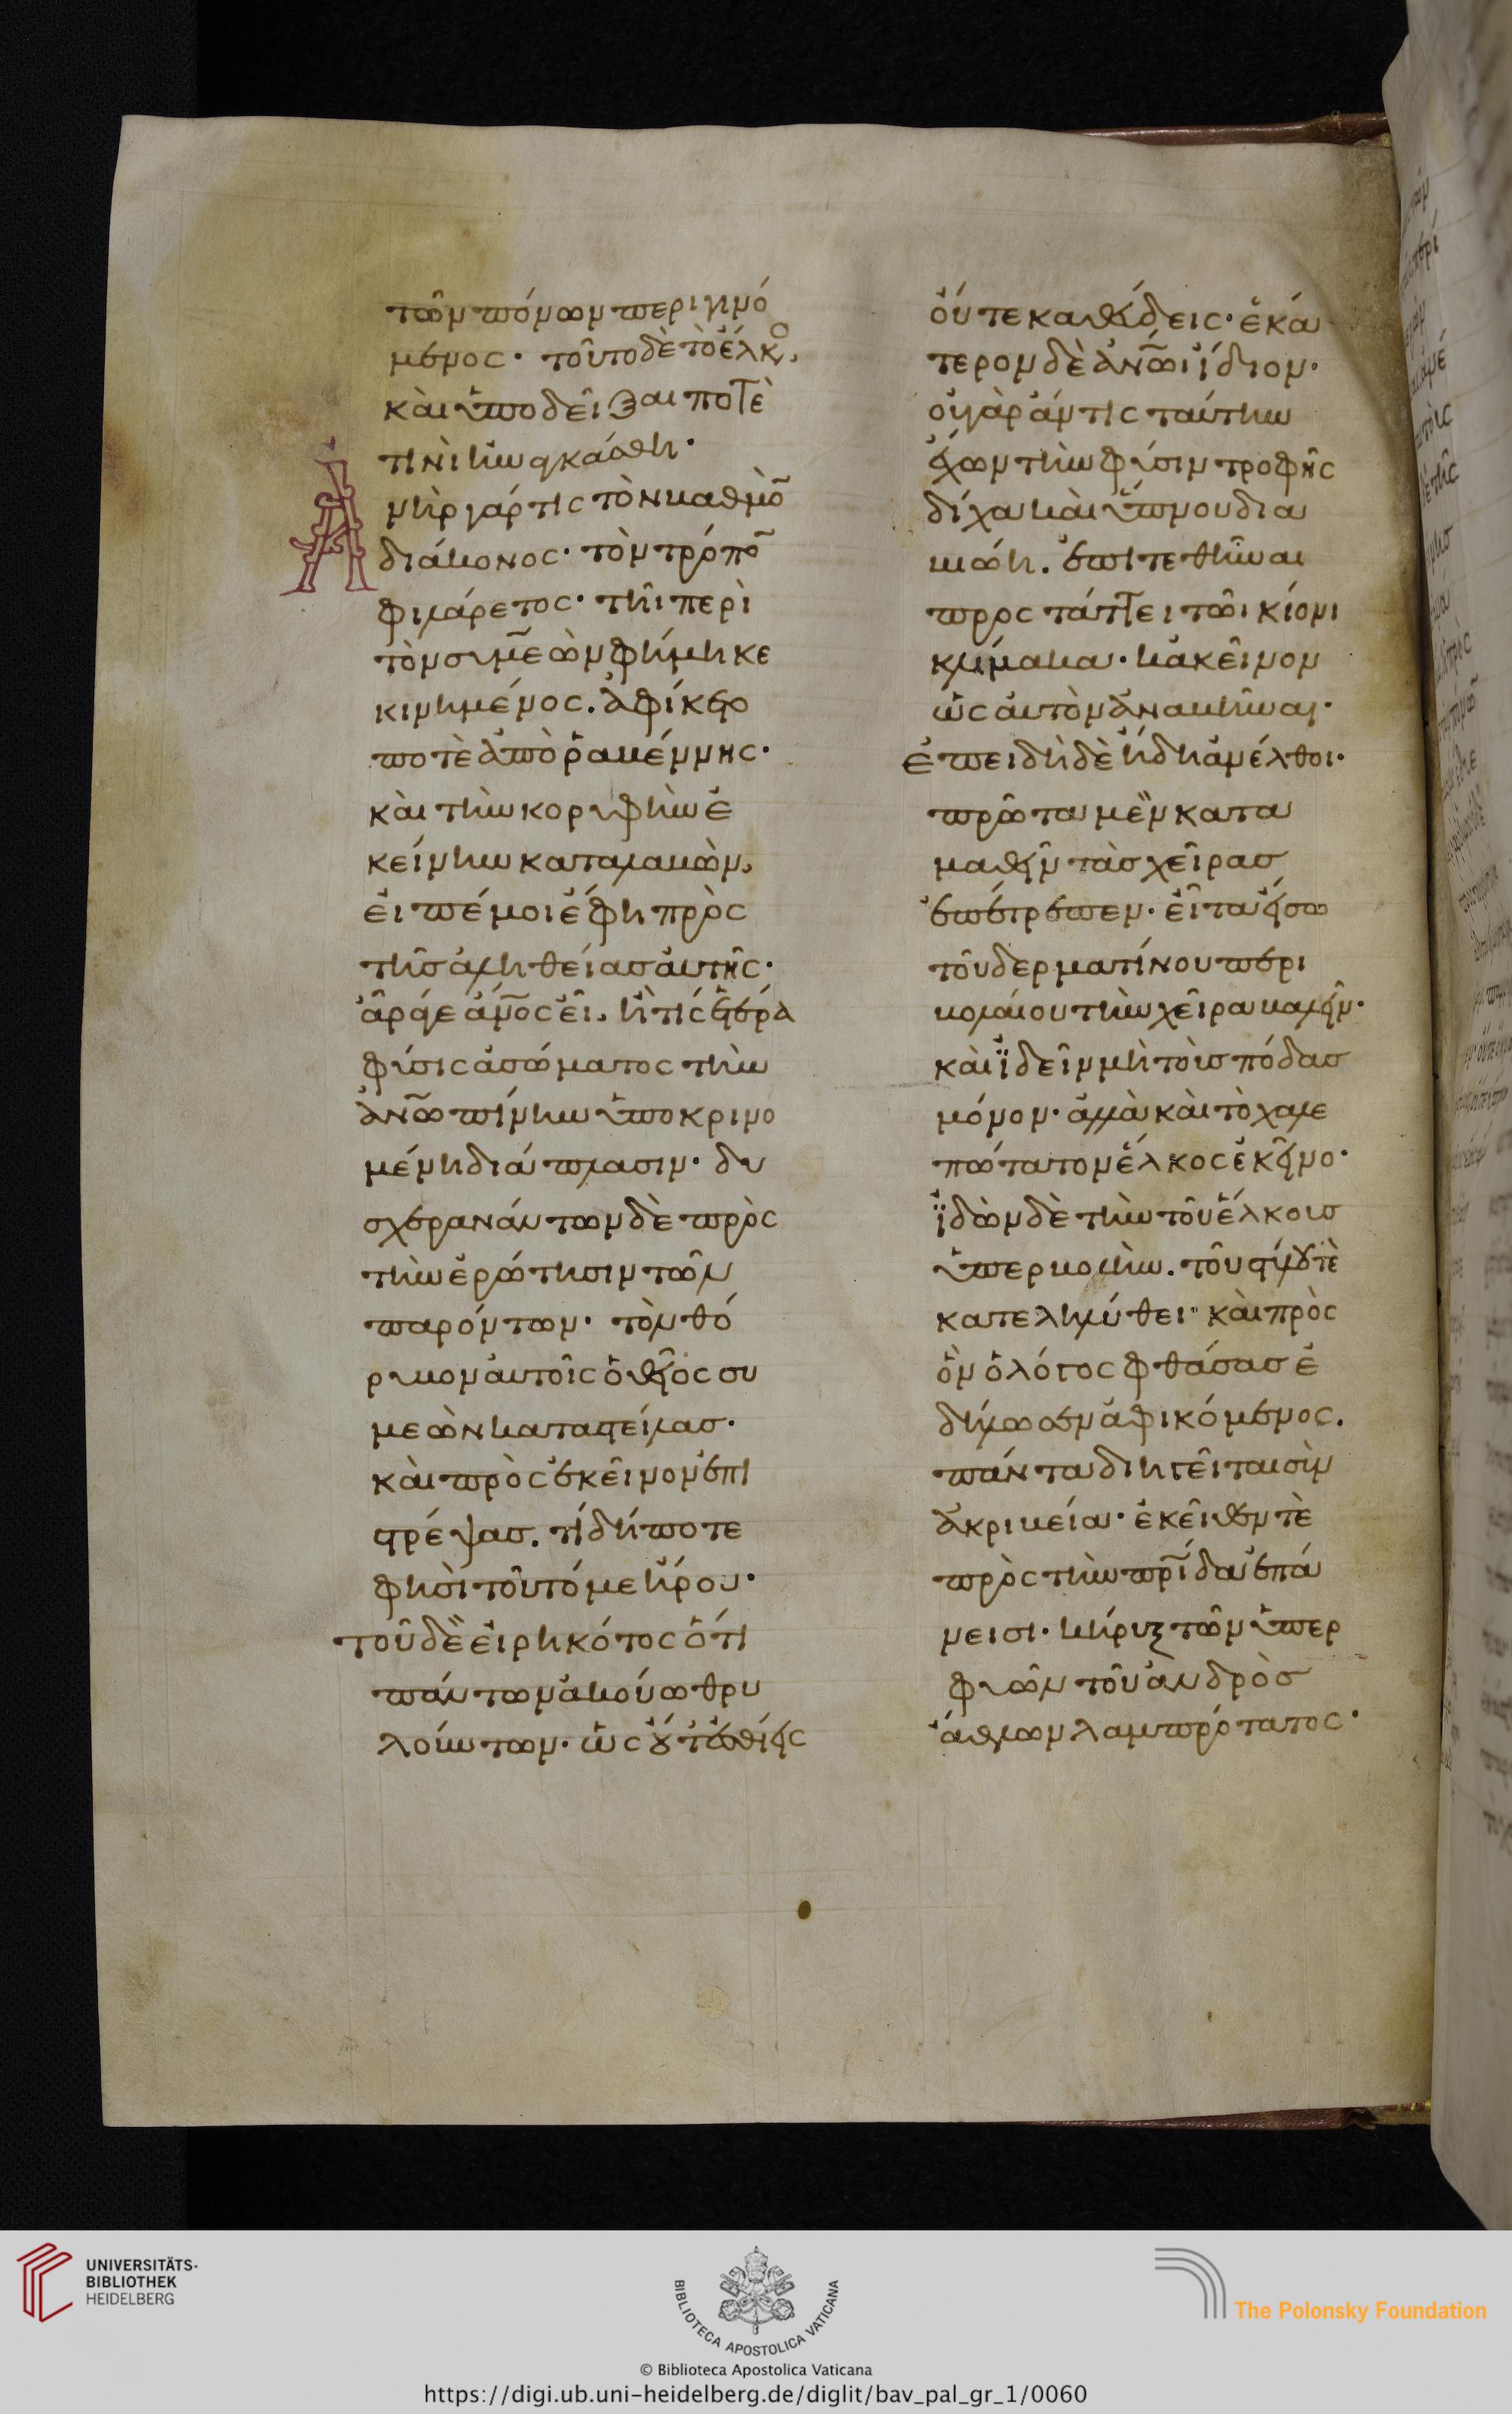 τῶν πόνων περιγινό
μενος· τοῦτο δὲ τὸ ἕλκο,
καὶ ὑποδεῖξαι ποτὲ
τινὶ ἠναγκάσθη·
ἀνὴρ γάρ τις τὸν βαθμὸ
διάκονος· τὸν τρόπο
φιλάρετος· τῆι περὶ
τὸν συμεὼν φήμηι κε
κινημένος. ἀφίκετο
ποτὲ ἀπὸ ῥαβέννης·
καὶ τὴν κορυφὴν ἐ
κείνην καταλαβὼν,
εἰπέ μοι ἔφη πρὸς
τῆς ἀληθείας αὐτῆς·
ἆρά γε ἄνος εἶ, ἤ τις ἑτέρα
φύσις ἀσώματος τὴν
ἀνωπίνην ὑποκρινο
μένη διάπλασιν· δυ
σχεραναντων δὲ πρὸς
τὴν ἐρώτησιν τῶν
παρόντων· τὸν θό
ρυβον αὐτοῖς ὁ θεῖος συ
μεὼν καταστείλας·
καὶ πρὸς ἐκεῖνον ἐπι
στρέψας. τί δήποτε
φησὶ τοῦτό με ἤρου·
τοῦ δὲ εἰρηκότος ὅτι
πάντων ἀκούω θρυ
λούντων· ὡς οὔτ' ἐσθίεις
οὔτε καθεύδεις· ἑκά
τερον δὲ ἀνωι ἴδιον·
οὐ γὰρ ἄν τις ταύτην
ἔχων τὴν φύσιν τροφῆς
δίχα καὶ ὕπνου δια
βιώη. ἐπιτεθῆναι
προστάττει τῶι κίονι
κλίμακα· κἀκεῖνον
ὡς αὐτὸν ἀναβῆναι·
ἐπειδὴ δὲ ἤδη ἀνέλθοι·
πρῶτα μὲν κατα
μαθεῖν τὰς χεῖρας
ἐπέτρεπεν· εἶτα εἴσω
τοῦ δερματίνου περι
βολαίου τὴν χεῖρα βαλεῖν·
καὶ ἰδεῖν μὴ τοὺς πόδας
μόνον· ἀλλὰ καὶ τὸ χαλε
πώτατον ἕλκος ἐκεῖνο·
ἰδὼν δὲ τὴν τοῦ ἕλκους
ὑπερβολὴν. τοῦ στύλου τὲ
κατεληλύθει· καὶ πρὸς
ὃν ὁ λόγος φθάσας ἐ
δήλωσεν ἀφικόμενος.
πάντα διηγεῖται σὺν
ἀκριβεία· ἐκεῖθεν τὲ
πρὸς τὴν πρίδα ἐπά
νεισι· κήρυξ τῶν ὑπερ
φυῶν τοῦ ἀνδρὸς
ἄθλων λαμπρότατος·
UNIVERSITÄTS-
BIBLIOTHEK
HEIDELBERG
BIBLIOTECA APOSTOLICA VATICANA
The Polonsky Foundation
© Biblioteca Apostolica Vaticana
https://digi.ub.uni-heidelberg.de/diglit/bav_pal_gr_1/0060